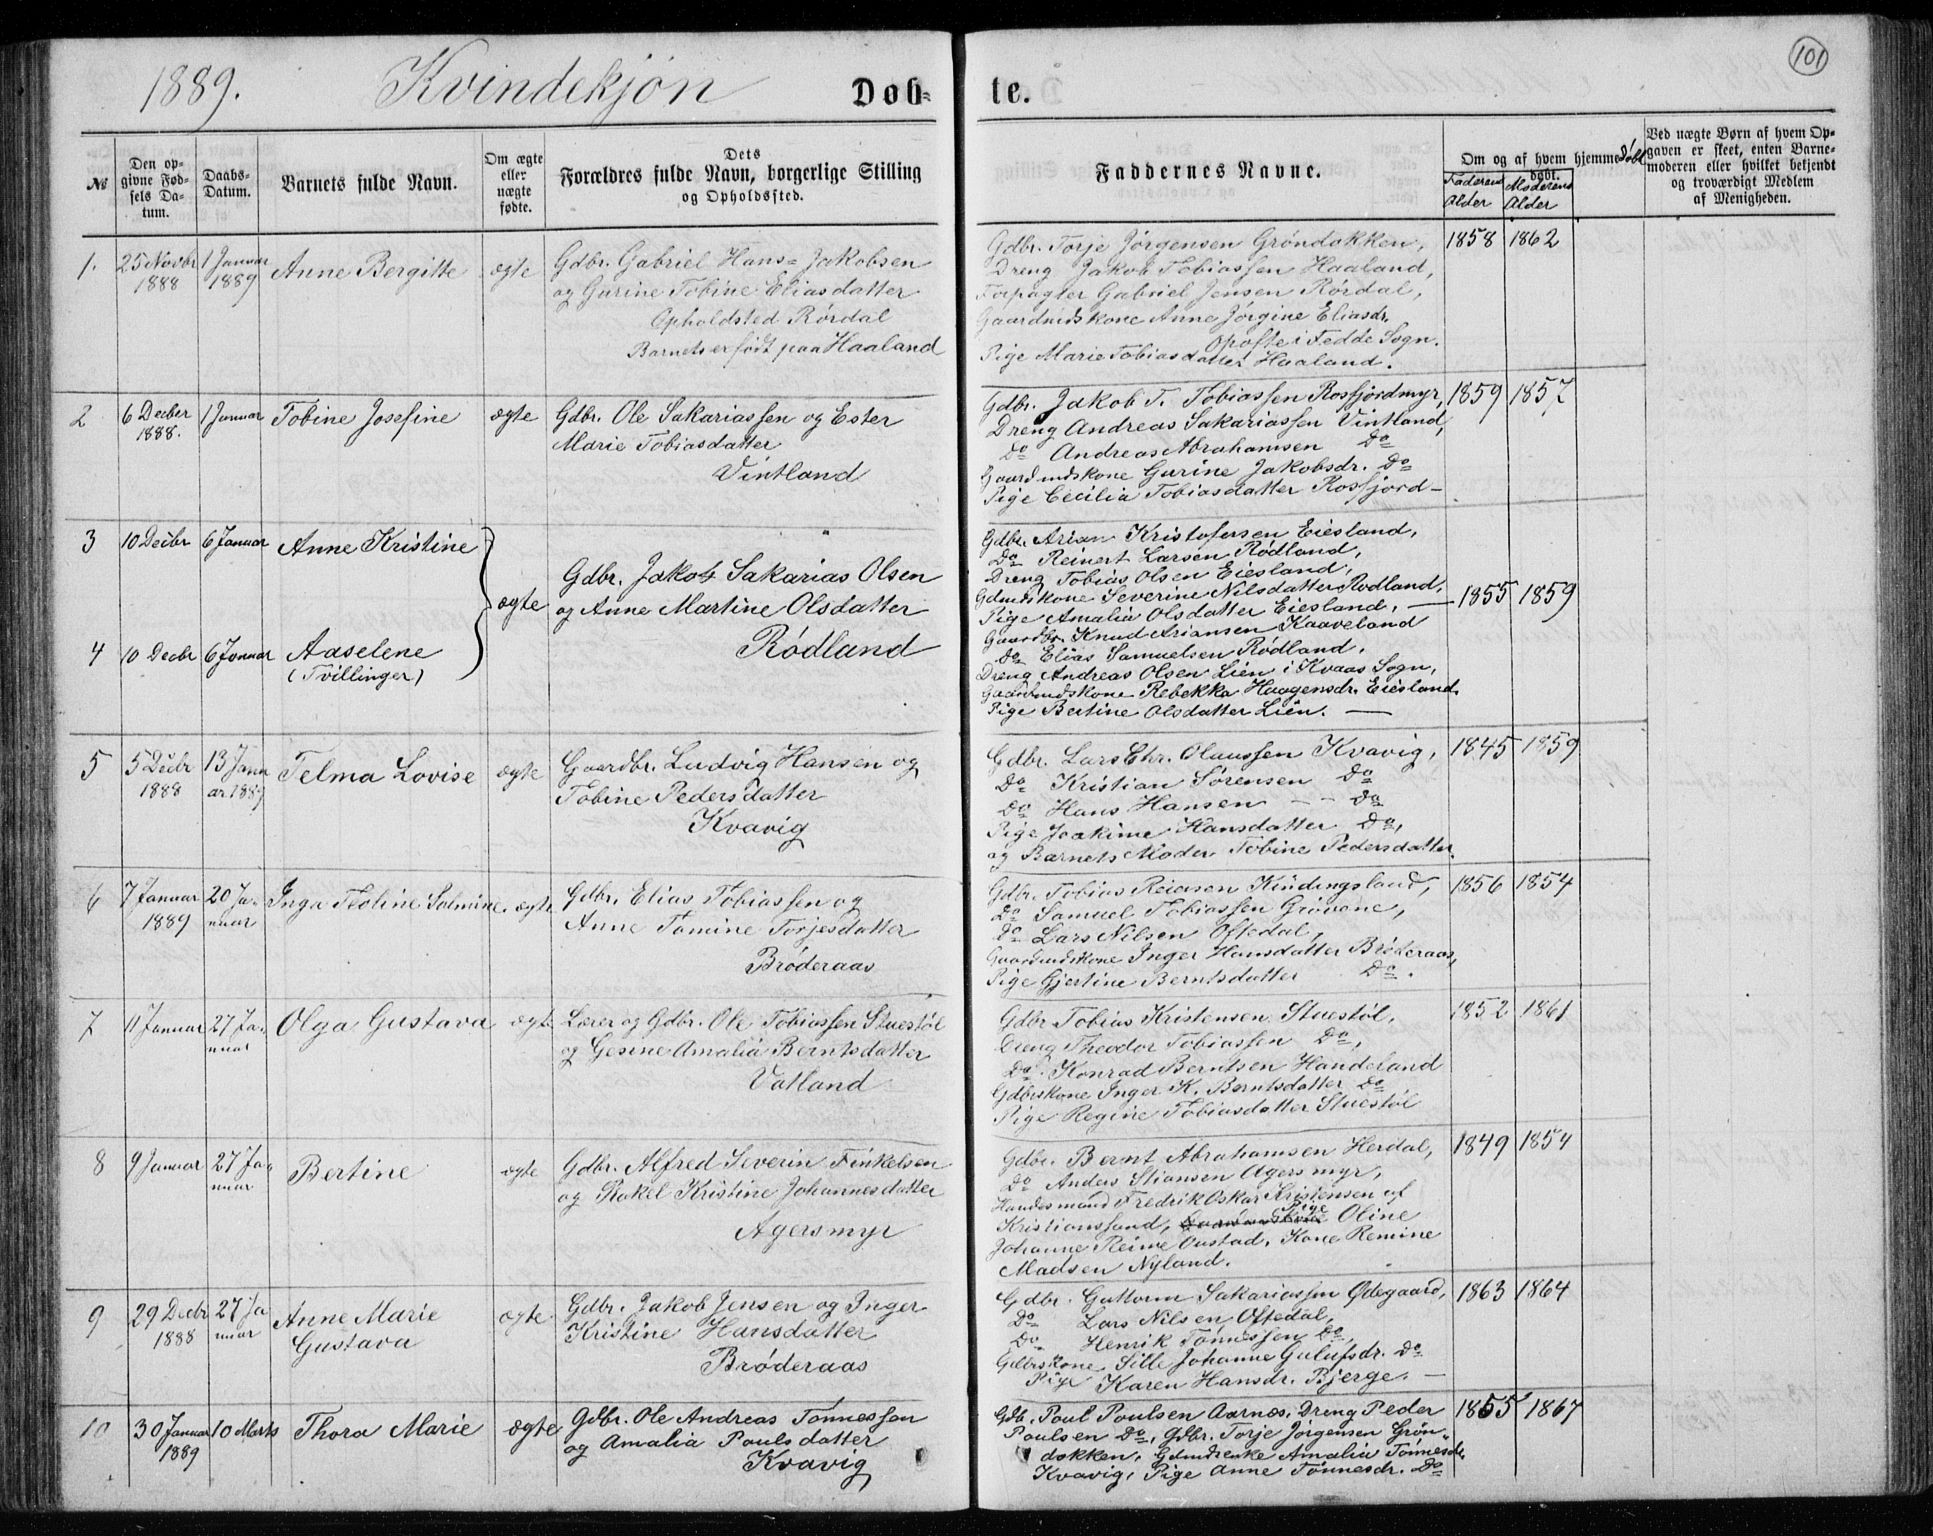 101
1889. Kvindekjön Döb- te.
№
Den opgivne Fødsels Datum.
Daabs-Datum.
Barnets fulde Navn.
Om ægte eller uægte fødte.
Dets Forældres fulde Navn, borgerlige Stilling og Opholdssted.
Faddernes Navne.
Om og af hvem hjemmedöbt
Faderens Alder
Moderens Alder
Ved uægte Børn af hvem Opgaven er skeet, enten Barnemoderen eller hvilket bekjendt og troværdigt Medlem af Menigheden.
1. 25 Novbr 1888
1 Januar 1889
Anne Bergitte
ægte
Gdbr. Gabriel Hans= Jakobsen
og Gurine Tobine Eliasdatter
Opholdsted Rørdal
Barnets er født paa Haaland
Gdbr. Torje Jörgensen Gröndokken,
Dreng Jakob Tobiassen Haaland,
Forpagter Gabriel Jensen Rørdal,
Gaardmdskone Anne Jörgine Eliasdr.
Opofte i Fedde Sogn.
Pige Marie Tobiasdatter Haaland.
1858 1862
2 6 Decber 1888.
1 Januar
Tobine Josefine
ægte
Gdbr. Ole Sakariassen og Ester
Marie Tobiasdatter
Vintland
Gdbr. Jakob T. Tobiassen Rosfjordmyr,
Dreng Andreas Sakariassen Vintland,
Do Andreas Abrahamsen Do
Gaardmdskone Gurine Jakobsdr. Do
Pige Cecilia Tobiasdatter Rosfjord-
1859 1857
3 10 Decbr 6 Januar Anne Kristine
4 10 Decbr 6 Januar Aaselene
(Tvillinger)
ægte
Gdbr. Jakob Sakarias Olsen
og Anne Martine Olsdatter
Rødland
Gdbr. Arian Kristofersen Eiesland,
Do Reinert Larsen Rødland,
Dreng Tobias Olsen Eiesland,
Gdmdskone Severine Nilsdatter Rødland,
Pige Amalia Olsdatter Eiesland, —
Gaardbr. Knud Ariansen Kaaveland
Do Elias Samuelsen Rødland,
Dreng Andreas Olsen Lien i Kvaas Sogn,
Gaardmdskone Rebekka Haagensdr. Eiesland,
Pige Bertine Olsdatter Lien. —
1855 1859
5 5 Decbr 1888
13 Januar 1889
Telma Lovise
ægte
Gaardbr. Ludvig Hansen og
Tobine Pedersdatter
Kvavig
Gdbr. Lars Chr. Olaussen Kvavig,
Do Kristian Sørensen Do
Do Hans Hansen - - Do
Pige Joakime Hansdatter Do,
og Barnets Moder Tobine Pedersdatter.
1845 1859
6 7 Januar 1889
20 Januar
Inga Teoline Salmine.
ægte
Gdbr. Elias Tobiassen og
Anne Tomine Torjesdatter
Brøderaas
Gdbr. Tobias Reiersen Kindingsland,
Do Samuel Tobiassen Grøvene,
Do Lars Nilsen Oftedal,
Gaardmdskone Inger Hansdatter Brøderaas,
Pige Gjertine Berntsdatter Do.
1856 1854
7 11 Januar
27 Januar
Olga Gustava
ægte
Lærer og Gdbr. Ole Tobiassen Stuestøl
og Gesine Amalia Berntsdatter
Vatland
Gdbr Tobias Kristensen Stuestøl,
Dreng Theodor Tobiassen Do,
Do. Konrad Berntsen Handeland
Gdbrskone Inger K. Berntsdatter Do
Pige Regine Tobiasdatter Stuestøl
1852 1861
8 9 Januar
27 Januar
Bertine
ægte
Gdbr. Alfred Severin Finkelsen
og Rakel Kristine Johannesdatter
Agersmyr
Gdbr. Bernt Abrahamsen Herdal,
Do Anders Stiansen Agersmyr,
Handesmand Fredrik Oskar Kristensen af
Kristianssand, Pige Oline
Johanne Reime Oustad, Kone Remine
Madsen Nyland.
1849 1854
9 29 Decbr 1888
27 Januar
Anne Marie
Gustava
ægte
Gdbr. Jakob Jensen og Inger
Kristine Hansdatter
Brøderaas
Gdbr. Guttorm Sakariassen Ødegaard,
Do Lars Nilsen Oftedal,
Do Henrik Tønnessen Do,
Gdbrskone Sille Johanne Gulufsdr. Do
Pige Karen Hansdr. Bjerge. —
1863 1864
10 30 Januar 1889
10 Marts
Thora Marie
ægte
Gdbr. Ole Andreas Tönnessen
og Amalia Poulsdatter
Kvavig
Gdb. Poul Poulsen Aarnes, Dreng Peder
Poulsen Do, Gdbr. Torje Jörgensen Grön-
dokken, Gdmdsenke Amalia Tönnesdr.
Kvavig, Pige Anne Tönnesdr. Do
1855 1867